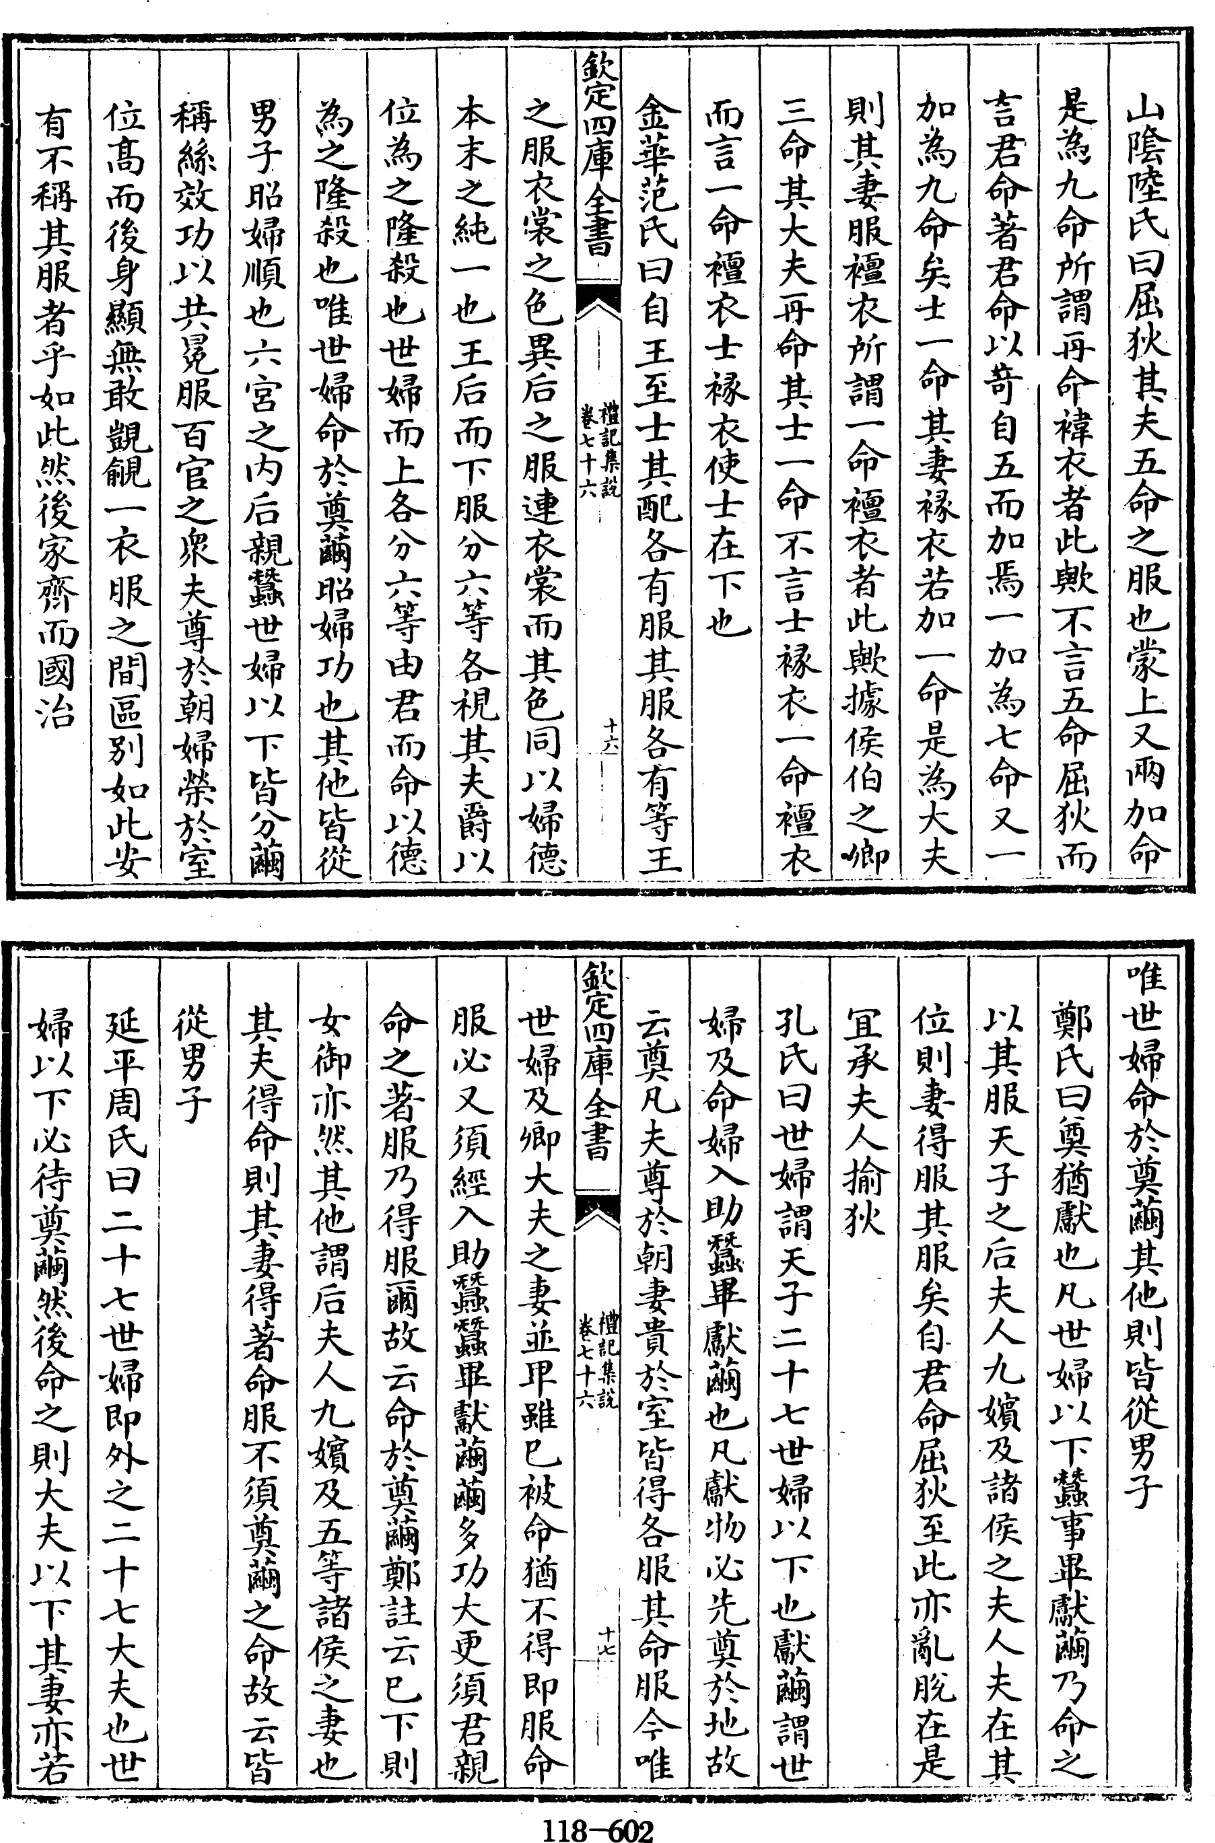 山隂陸氏曰屈狄其夫五命之服也蒙上又兩加命
是為九命所謂再命褘衣者此歟不言五命屈狄而
言君命著君命以竒自五而加焉一加為七命又一
加為九命矣士一命其妻褖衣若加一命是為大夫
則其妻服襢衣所謂一命襢衣者此歟據侯伯之卿
三命其大夫再命其士一命不言士褖衣一命襢衣
而言一命襢衣士褖衣使士在下也
金華范氏曰自王至士其配各有服其服各有等王
欽定四庫全書
禮記集說
卷七十六
十六
之服衣裳之色異后之服連衣裳而其色同以婦德
本末之純一也王后而下服分六等各視其夫爵以
位為之隆殺也世婦而上各分六等由君而命以德
為之隆殺也唯世婦命於奠繭昭婦功也其他皆從
男子昭婦順也六宮之内后親蠶世婦以下皆分繭
稱絲效功以共冕服百官之衆夫尊於朝婦榮於室
位髙而後身顯無敢覬覦一衣服之間區别如此安
有不稱其服者乎如此然後家齊而國治
唯世婦命於奠繭其他則皆從男子
鄭氏曰奠猶獻也凡世婦以下蠶事畢獻繭乃命之
以其服天子之后夫人九嬪及諸侯之夫人夫在其
位則妻得服其服矣自君命屈狄至此亦亂脫在是
宜承夫人揄狄
孔氏曰世婦謂天子二十七世婦以下也獻繭謂世
婦及命婦入助蠶畢獻繭也凡獻物必先奠於地故
云奠凡夫尊於朝妻貴於室皆得各服其命服今唯
欽定四庫全書
禮記集說
卷七十六
十七
世婦及卿大夫之妻並卑雖已被命猶不得即服命
服必又須經入助蠶蠶畢獻繭繭多功大更須君親
命之著服乃得服爾故云命於奠繭鄭註云已下則
女御亦然其他謂后夫人九嬪及五等諸侯之妻也
其夫得命則其妻得著命服不須奠繭之命故云皆
從男子
延平周氏曰二十七世婦即外之二十七大夫也世
婦以下必待奠繭然後命之則大夫以下其妻亦若
118-602